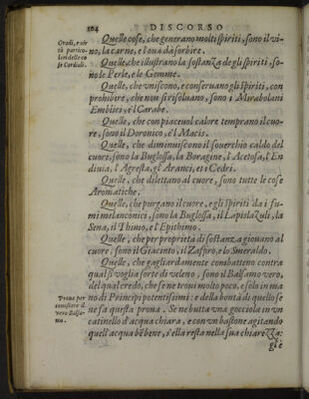 104 DISCORSO
Gradi, e uir
tù partico-
lari delle co
se Cordiali.
Quelle cose, che generano molti spiriti, sono il ui-
no, la carne, e l'oua da sorbire.
Quelle, che illustrano la sostanza degli spiriti, so-
no le Perle, e le Gemme.
Quelle, che vniscono, e conseruano gli spiriti, con
prohibire, che non si risoluano, sono i Mirabolani
Emblici, e'l Carabe.
Quelle, che con piaceuol calore temprano il cuo-
re, sono il Doronico, e'l Macis.
Quelle, che diminuiscono il souerchio caldo del
cuore, sono la Buglossa, la Boragine, l'Acetosa, l'En
diuia, l'Agresta, gl'Aranci, et i Cedri.
Quelle, che dilettano al cuore, sono tutte le cose
Aromatiche.
Quelle, che purgano il cuore, e gli spiriti da i fu-
mi melanconici, sono la Buglossa, il Lapislazuli, la
Sena, il Thimo, e l'Epithimo.
Quelle, che per proprietà di sostanza giouano al
cuore, sono il Giacinto, il Zaffiro, e lo Smeraldo.
Quelle, che gagliardamente combatteno contra
qual si voglia sorte di veleno, sono il Balsamo vero,
del qual credo, che se ne troui molto poco, e solo in ma
no di Principi potentissimi: e della bontà di quello se
Proua per
conoscere il
vero Balsa-
mo.
ne fa questa proua. Se ne butta vna gocciola in vn
catinello d'acqua chiara, e con vn bastone agitando
quell'acqua bè bene, s'ella resta nella sua chiarezza:
gl'è